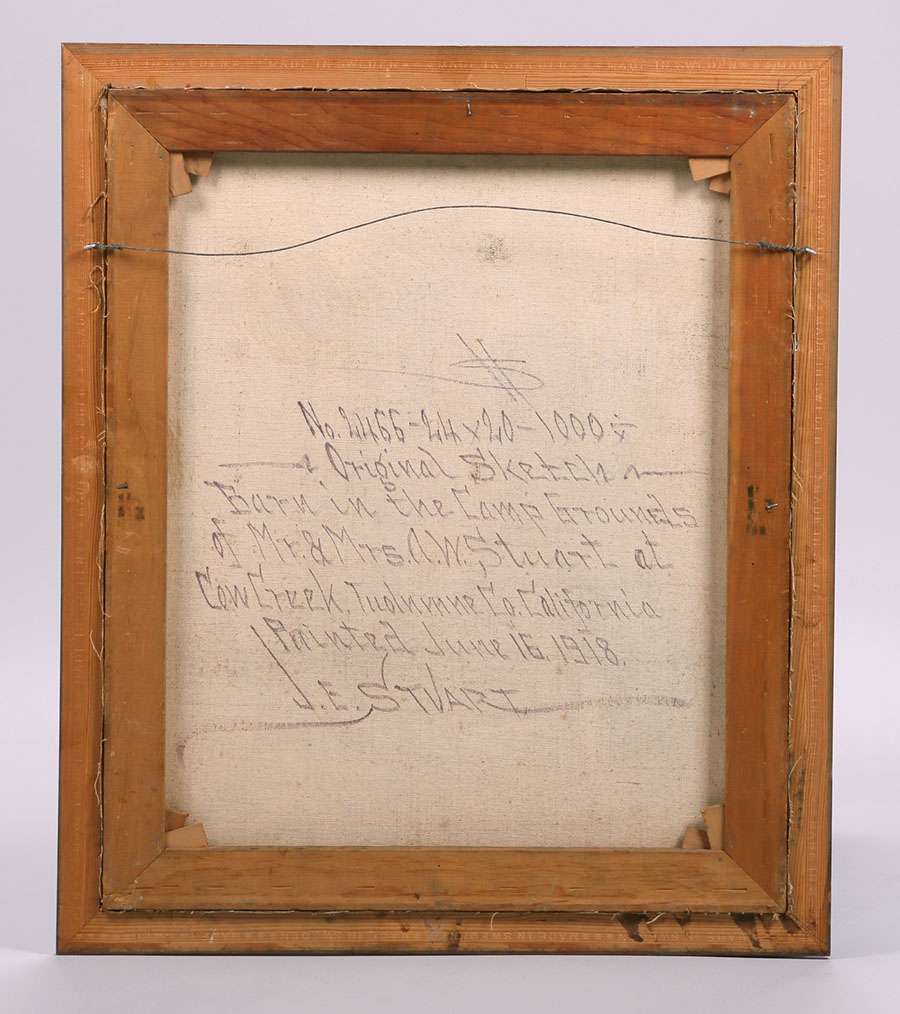 No. 2466-24x20-1000÷
Original Sketch
Barn in the Camp Grounds
of Mr. & Mrs. A.W. Stuart at
Cow Creek, Tuolumne Co. California
Painted June 16, 1918.
J.E. STUART